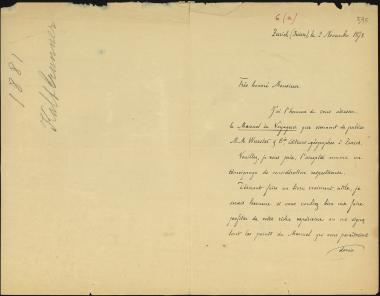 1881
Kaltbrunner
6(a)
Zurich (Suisse), le 2 Novembre 1878
Très honoré Monsieur
J'ai l'honneur de vous adresser
le Manuel du Voyageur que viennent de publier
M.M. Wurster & Cie éditeurs géographes à Zurich.
Veuillez, je vous prie, l'accepter comme un
témoignage de considération respectueuse.
Désirant faire un livre vraiment utile, je
serais heureux si vous vouliez bien me faire
profiter de votre riche expérience en me signa-
lant les points du Manuel qui vous paraîtraient